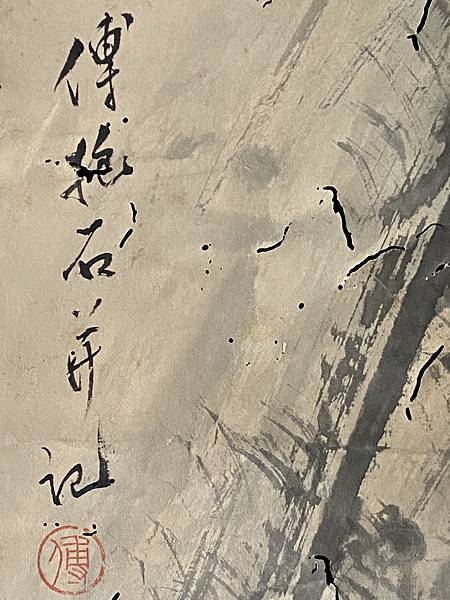 傅抱石并記
傅